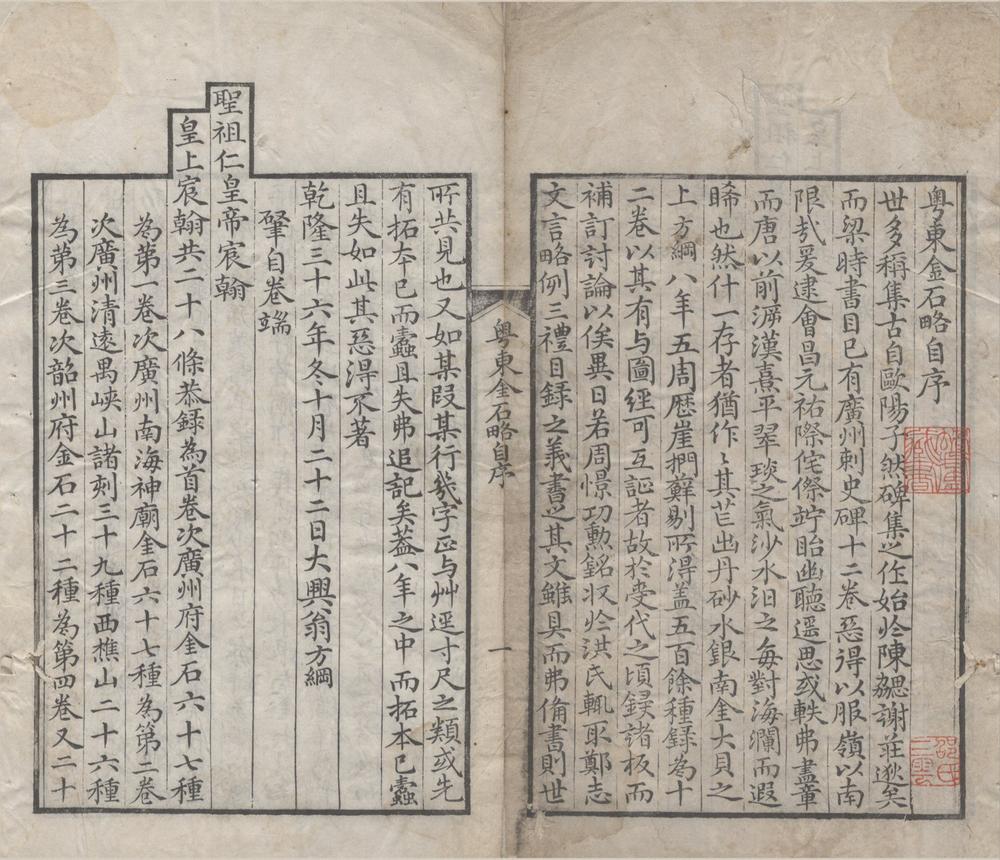 粵東金石略自序
世多稱集古自歐陽子然碑集之作始於陳勰謝莊逖矣
而梁時書目已有廣州刺史碑十二卷惡得以服嶺以南
限㢤爰逮會昌元祐際侘傺竚眙幽聽遥思或軼弗盡章
而唐以前溯漢熹平翠琰之氣沙水汨之每對海瀾而遐
睎也然什一存者猶作〻其芒出丹砂水銀南金大貝之
上方綱八年五周歷崖捫蘚剔所得盖五百餘種錄為十
二卷以其有与圖經可互証者故於受代之頃録諸板而
補訂討論以俟異日若周憬功勲銘㳄於洪氏輒取鄭志
文言略例三禮目録之義書之其文雖具而弗俻書則世
粵東金石略自序
一
所共見也又如某段某行幾字正与艸逕寸尺之類或先
有拓本已而蠹且失弗追記矣葢八年之中而拓本已蠹
且失如此其惡得不著
乾隆三十六年冬十月二十二日大興翁方綱
肈自卷端
聖祖仁皇帝宸翰
皇上宸翰共二十八條恭録為首卷次廣州府金石六十七種
為第一卷次廣州南海神廟金石六十七種為第二卷
次廣州清遠禺峽山諸刻三十九種西樵山二十六種
為第三卷次韶州府金石二十二種為第四卷又二十